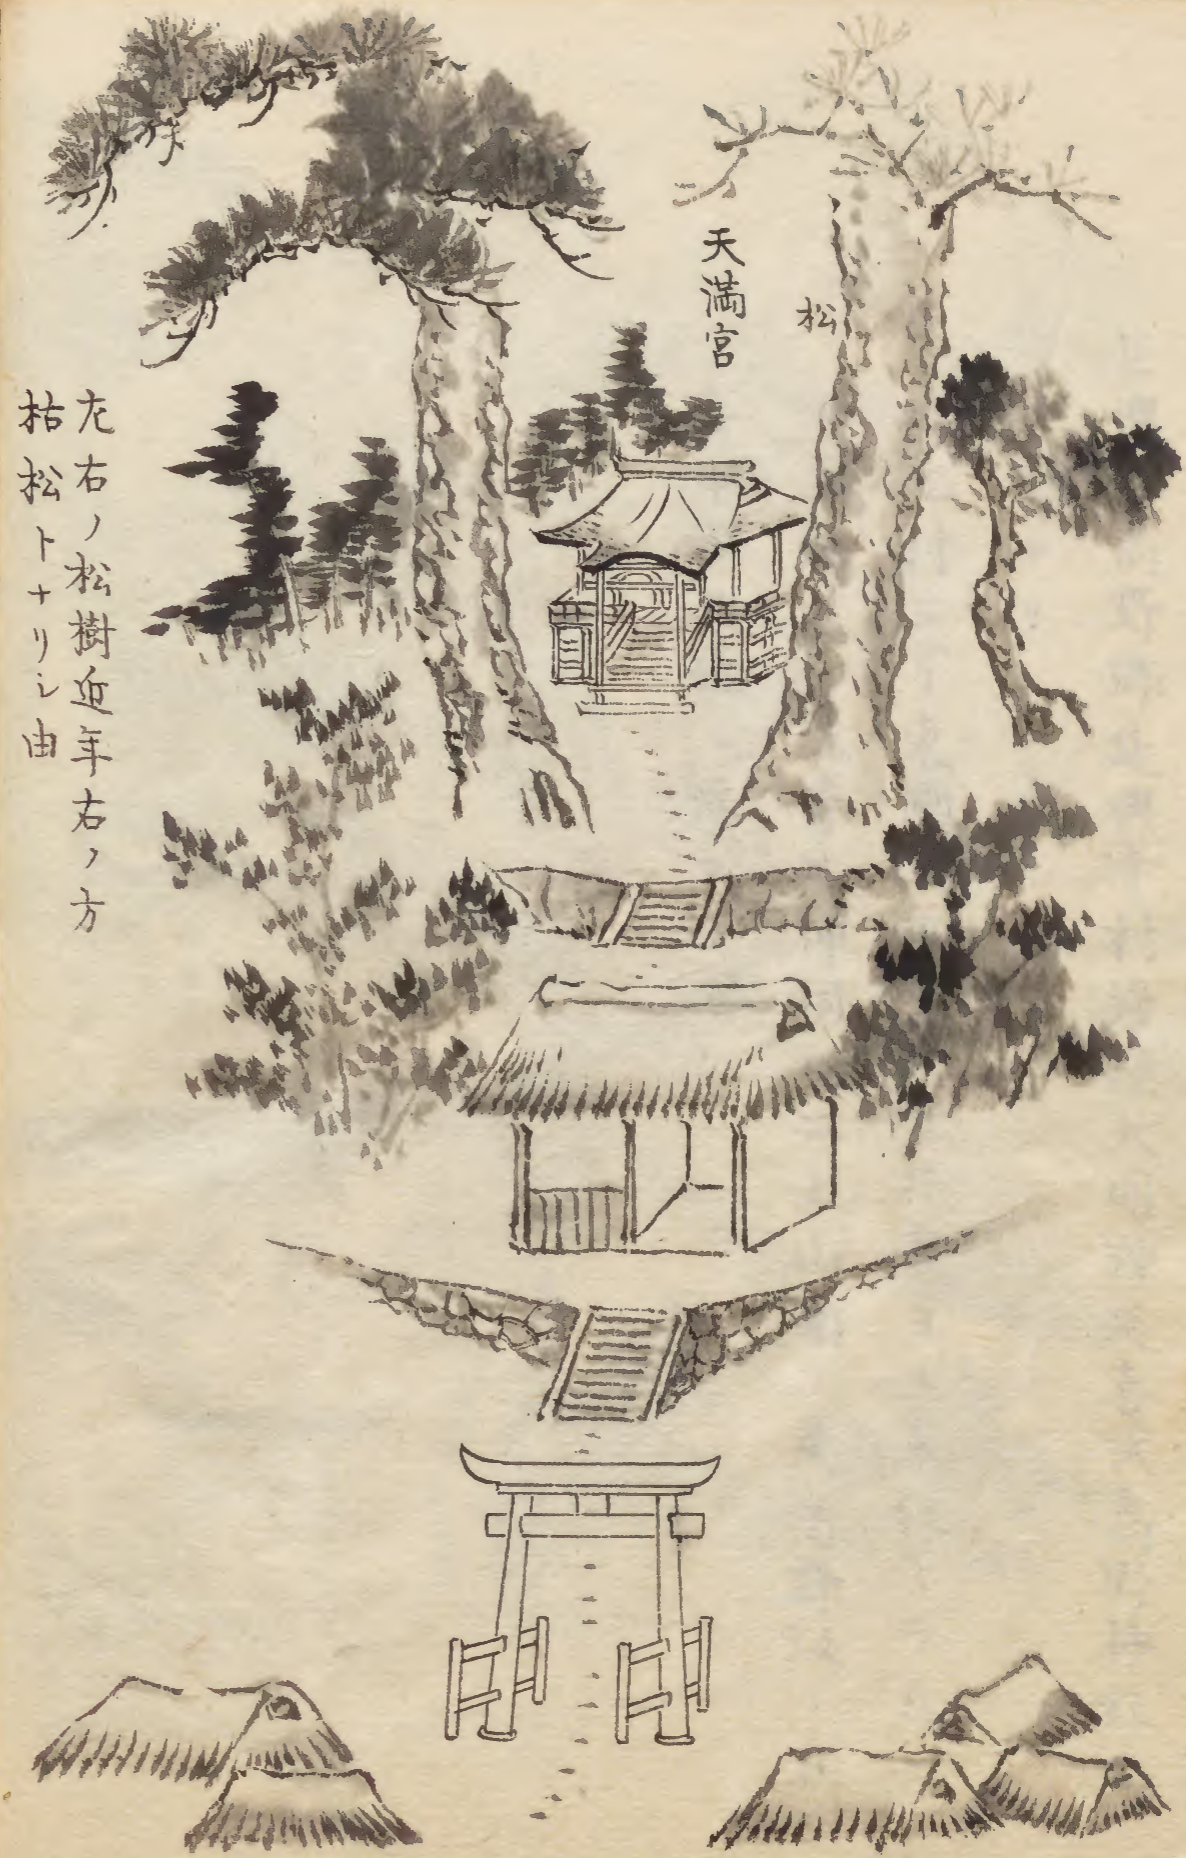 天満宮
松
左右ノ松樹近年右ノ方
枯松トナリシ由